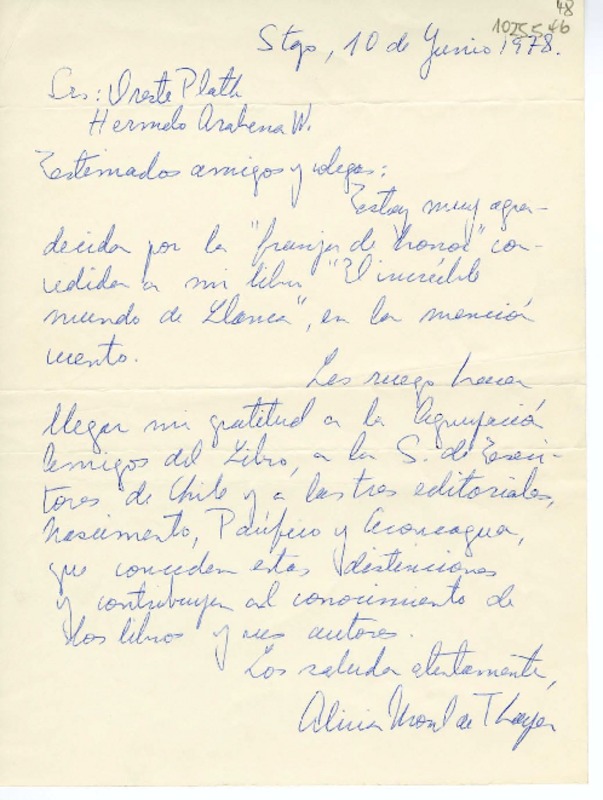 48
1025546
Stgo, 10 de Junio 1978.
Srs: Oreste Plath
Hermelo Arabena W.
Estimados amigos y colegas:
Estoy muy agra-
decida por la "franja de honor" con-
cedida a mi libro "El increíble
mundo de Llanca", en la mención
cuento.
Les ruego hacer
llegar mi gratitud a la Agrupación
Amigos del Libro, a la S. de Escri-
tores de Chile y a las tres editoriales,
Nascimento, Pacífico y Aconcagua,
que conceden estas distinciones
y contribuyen al conocimiento de
los libros y sus autores.
Los saluda atentamente,
Alicia Morel de Thayer